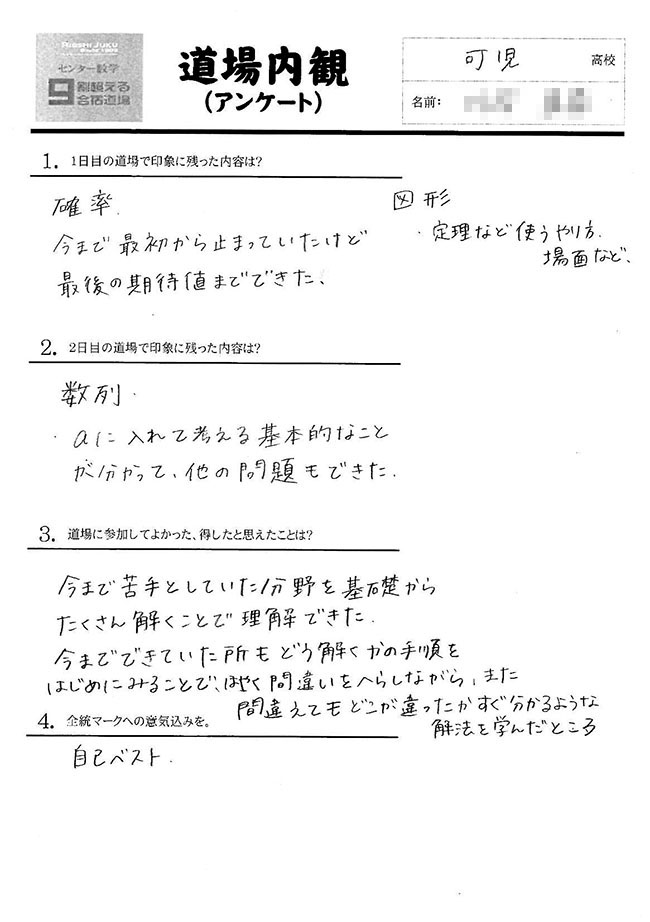 RISSHI JUKU
センター数学
9割超える
合宿道場
道場内観
(アンケート)
可児 高校
名前:
1. 1日目の道場で印象に残った内容は?
確率.
今まで最初から止まっていたけど
最後の期待値までできた、
図形
・定理など使うやり方、
場面など、
2. 2日目の道場で印象に残った内容は?
数列.
・aに入れて考える基本的なこと
が分かって、他の問題もできた.
3. 道場に参加してよかった、得したと思えたことは?
今まで苦手としていた分野を基礎から
たくさん解くことで理解できた.
今までできていた所もどう解くかの手順を
はじめにみることで、はやく間違いをへらしながら、また
間違えてもどこが違ったかすぐ分かるような
解法を学んだところ
4. 全統マークへの意気込みを。
自己ベスト.